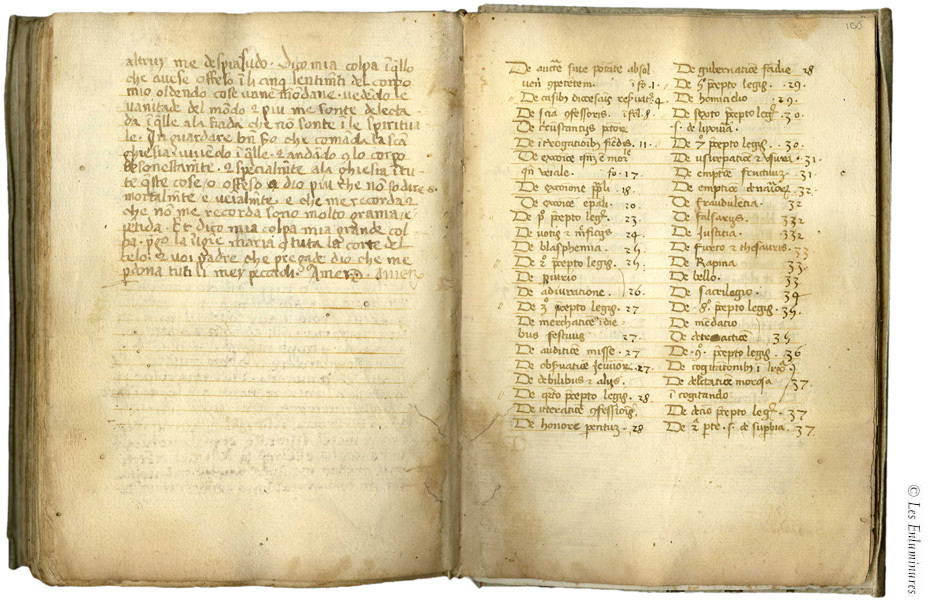 altrui me despiasudo. Dico mia colpa i q̃llo
che avese offeso i li cinq sentimẽti del corpo
mio oldendo cose vane mõdane. vedẽdo le
vanitade del mõdo ⁊ piu me sonte delecta
da i q̃lle ala fiada che nõ sonte i le spiritua
le. In guardare bñ fio che comãda la scã
ghiesia. vivẽdo i q̃lle. ⁊ andãdo cõ lo corpo
desonestamẽte. ⁊ specialmẽte ala ghiesia
q̃ste cose o offeso a dio piu che nõ so dire
mortalmẽte e venialmẽte. e che me recorda ⁊
che nõ me recorda sono molto grama e
pẽtida. Et dico mia colpa mia grande col
pa. p̃go la v̾gie maria ⁊ tuta la corte del
celo. ⁊ voi padre che pregade dio che me
p̃dona tuti li mey peccadi. Amen. amen
150
De auct̃e sive potãte absol
vẽdi penitetem. i fo. 1.
De casib̃ diocesais reservat̃ 4.
De sc̃ia cõfessoris. i fol. 8.
De circustantijs pctor̃
De ĩt̾rogatioib̃ fiẽdis. 11.
De excõice
. fo. 17.
De excõione papali. 18.
De excõice epali. 20.
De p̊ p̃cepto leg̃. 23.
De votis ⁊ 24
De blasphemia. 25.
De 2º p̃cepto legis. 25.
De p̃iurio
De adiuratione. 26.
De 3º p̃cepto legis. 27
De merchãtice i die
bus festivis 27.
De auditiõe misse. 27
De obs̃vatiõe ieiunior̃. 27.
De debilibus ⁊ alijs.
De q̃rto p̃cepto legis. 28
De iteratiõe cõfessiõis.
De honore parentuȝ. 28
De gubernatiõe familie 28
De 5º p̃cepto legis. 29.
De homicidio. 29.
De sexto p̃cepto leg̃. 30.
s. de luxuria.
De 7º p̃cepto legis. 30.
De usurpatiõe ⁊ usura. 31.
De emptiõe fructuuȝ. 31
De emptiõe 32.
De fraudulẽtia. 32
De falsarijs. 332
De Justitia. 332
De furto ⁊ thesauris. 33
De Rapina 33.
De bello. 33
De sacrilegio. 34
De 8º p̃cepto legis. 35.
De mẽdacio
De detractiõe 35
De 9º p̃cepto legis. 36
De cogitatiõib̃
De delectatiõe morosa 37.
i cogitando
De decio p̃cepto leg̃. 37
De 2ª pte. s. de sup̃bia. 37.
© Les Enluminures